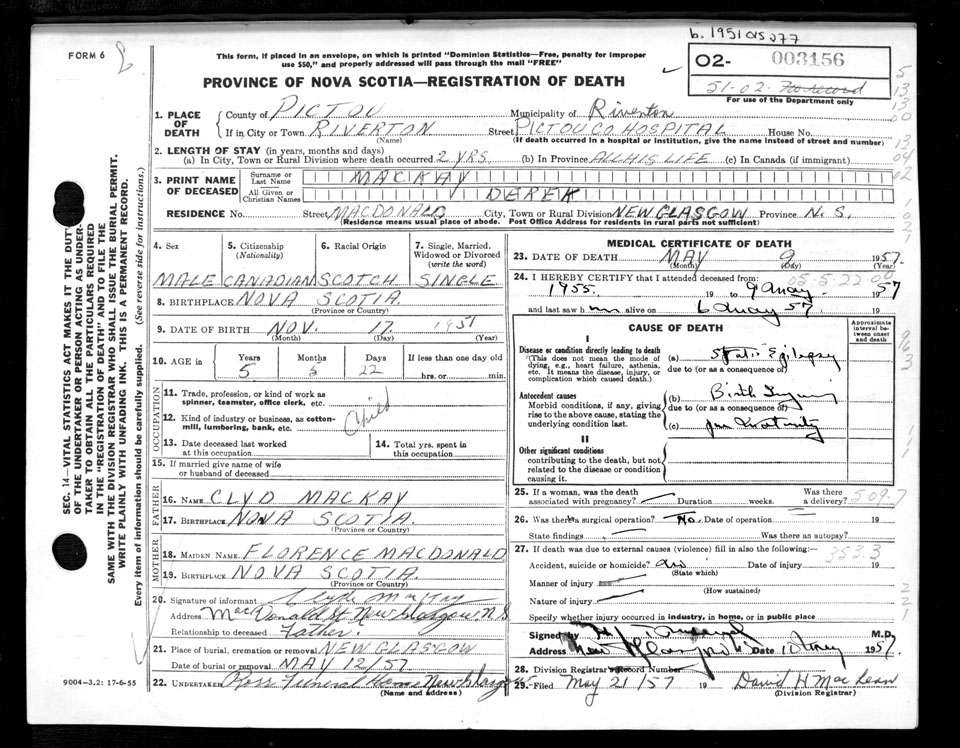 b. 1951 015 277
FORM 6
This form, if placed in an envelope, on which is printed "Dominion Statistics—Free, penalty for improper
use $50," and properly addressed will pass through the mail "FREE"
02- 003156
51-02- No record
For use of the Department only
PROVINCE OF NOVA SCOTIA—REGISTRATION OF DEATH
SEC. 14—VITAL STATISTICS ACT MAKES IT THE DUTY
OF THE UNDERTAKER OR PERSON ACTING AS UNDER-
TAKER TO OBTAIN ALL THE PARTICULARS REQUIRED
IN THE "REGISTRATION OF DEATH" AND TO FILE THE
SAME WITH THE DIVISION REGISTRAR WHO SHALL ISSUE THE BURIAL PERMIT.
WRITE PLAINLY WITH UNFADING INK. THIS IS A PERMANENT RECORD.
Every item of information should be carefully supplied. (See reverse side for instructions.)
1. PLACE OF DEATH
County of PICTOU Municipality of Riverton
If in City or Town RIVERTON Street PICTOU CO. HOSPITAL House No.
(Name) (If death occurred in a hospital or institution, give the name instead of street and number)
2. LENGTH OF STAY (in years, months and days)
(a) In City, Town or Rural Division where death occurred 2 YRS. (b) In Province ALL HIS LIFE (c) In Canada (if immigrant)
3. PRINT NAME OF DECEASED
Surname or Last Name MACKAY
All Given or Christian Names DEREK
RESIDENCE No. Street MACDONALD City, Town or Rural Division NEW GLASGOW Province N. S.
(Residence means usual place of abode. Post Office Address for residents in rural parts not sufficient)
4. Sex 5. Citizenship (Nationality) 6. Racial Origin 7. Single, Married, Widowed or Divorced (write the word)
MALE CANADIAN SCOTCH SINGLE
8. BIRTHPLACE NOVA SCOTIA
(Province or Country)
9. DATE OF BIRTH NOV. 17 1951
(Month) (Day) (Year)
10. AGE in Years Months Days If less than one day old
5 22 hrs. or min.
OCCUPATION
11. Trade, profession, or kind of work as spinner, teamster, office clerk, etc.
12. Kind of industry or business, as cotton-mill, lumbering, bank, etc.
Child
13. Date deceased last worked at this occupation
14. Total yrs. spent in this occupation
15. If married give name of wife or husband of deceased
FATHER
16. NAME CLYD MACKAY
17. BIRTHPLACE NOVA SCOTIA.
(Province or Country)
MOTHER
18. MAIDEN NAME FLORENCE MACDONALD
19. BIRTHPLACE NOVA SCOTIA.
(Province or Country)
20. Signature of informant Clyde MacKay
Address MacDonald St New Glasgow N.S
Relationship to deceased Father.
21. Place of burial, cremation or removal NEW GLASGOW
Date of burial or removal MAY 12/57.
22. UNDERTAKER Ross Funeral Home New Glasgow
(Name and address)
9004—3.2: 17-6-55
MEDICAL CERTIFICATE OF DEATH
23. DATE OF DEATH MAY 9 1957.
(Month) (Day) (Year)
24. I HEREBY CERTIFY that I attended deceased from:
05-5-22 00
1955. 19 to 9 May 1957
and last saw him alive on 6 May 57. 19
CAUSE OF DEATH
Approximate interval between onset and death
I
Disease or condition directly leading to death
(This does not mean the mode of dying, e.g., heart failure, asthenia, etc. It means the disease, injury, or complication which caused death.)
(a) Status Epilepsy
due to (or as a consequence of)
Antecedent causes
Morbid conditions, if any, giving rise to the above cause, stating the underlying condition last.
(b) Birth Injury
due to (or as a consequence of)
(c)
II
Other significant conditions
contributing to the death, but not related to the disease or condition causing it.
25. If a woman, was the death associated with pregnancy? Duration weeks. Was there a delivery?
509-7
26. Was there a surgical operation? No. Date of operation 19
State findings Was there an autopsy?
27. If death was due to external causes (violence) fill in also the following:—
353.3
Accident, suicide or homicide? Date of injury 19
(State which)
Manner of injury
(How sustained)
Nature of injury
Specify whether injury occurred in industry, in home, or in public place
Signed by M.D.
Address New Glasgow Date 10 May 1957.
28. Division Registrar's Record Number
29. Filed May 21/57 19 David H MacLean
(Division Registrar)